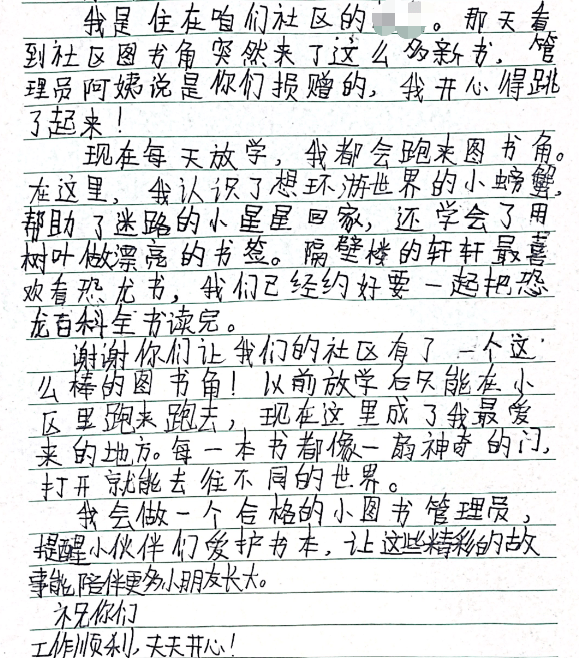 我是住在咱们社区的。那天看
到社区图书角突然来了这么多新书，管
理员阿姨说是你们损赠的，我开心得跳
了起来！
现在每天放学，我都会跑来图书角。
在这里，我认识了想环游世界的小螃蟹，
帮助了迷路的小星星回家，还学会了用
树叶做漂亮的书签。隔壁楼的轩轩最喜
欢看恐龙书，我们已经约好要一起把恐
龙百科全书读完。
谢谢你们让我们的社区有了一个这
么棒的图书角！以前放学后只能在小
区里跑来跑去，现在这里成了我最爱
来的地方。每一本书都像一扇神奇的门，
打开就能去往不同的世界。
我会做一个合格的小图书管理员，
提醒小伙伴们爱护书本，让这些精彩的故
事能陪伴更多小朋友长大。
祝你们
工作顺利，天天开心！